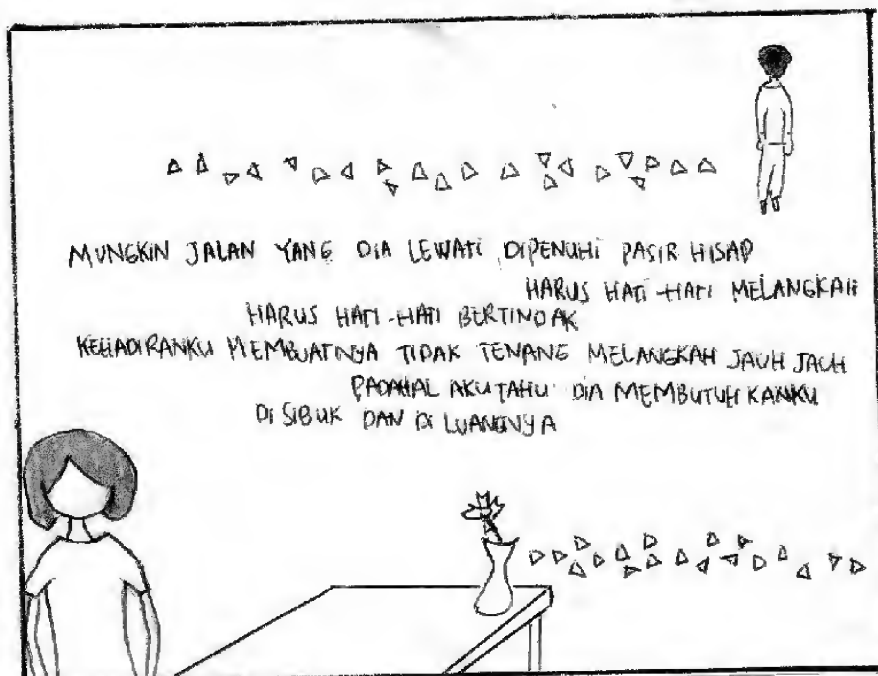 MUNGKIN JALAN YANG DIA LEWATI DIPENUHI PASIR HISAP
HARUS HATI-HATI MELANGKAH
HARUS HATI-HATI BERTINDAK
KEHADIRANKU MEMBUATNYA TIDAK TENANG MELANGKAH JAUH JAUH
PADAHAL AKU TAHU DIA MEMBUTUHKANKU
DI SIBUK DAN DI LUANGNYA